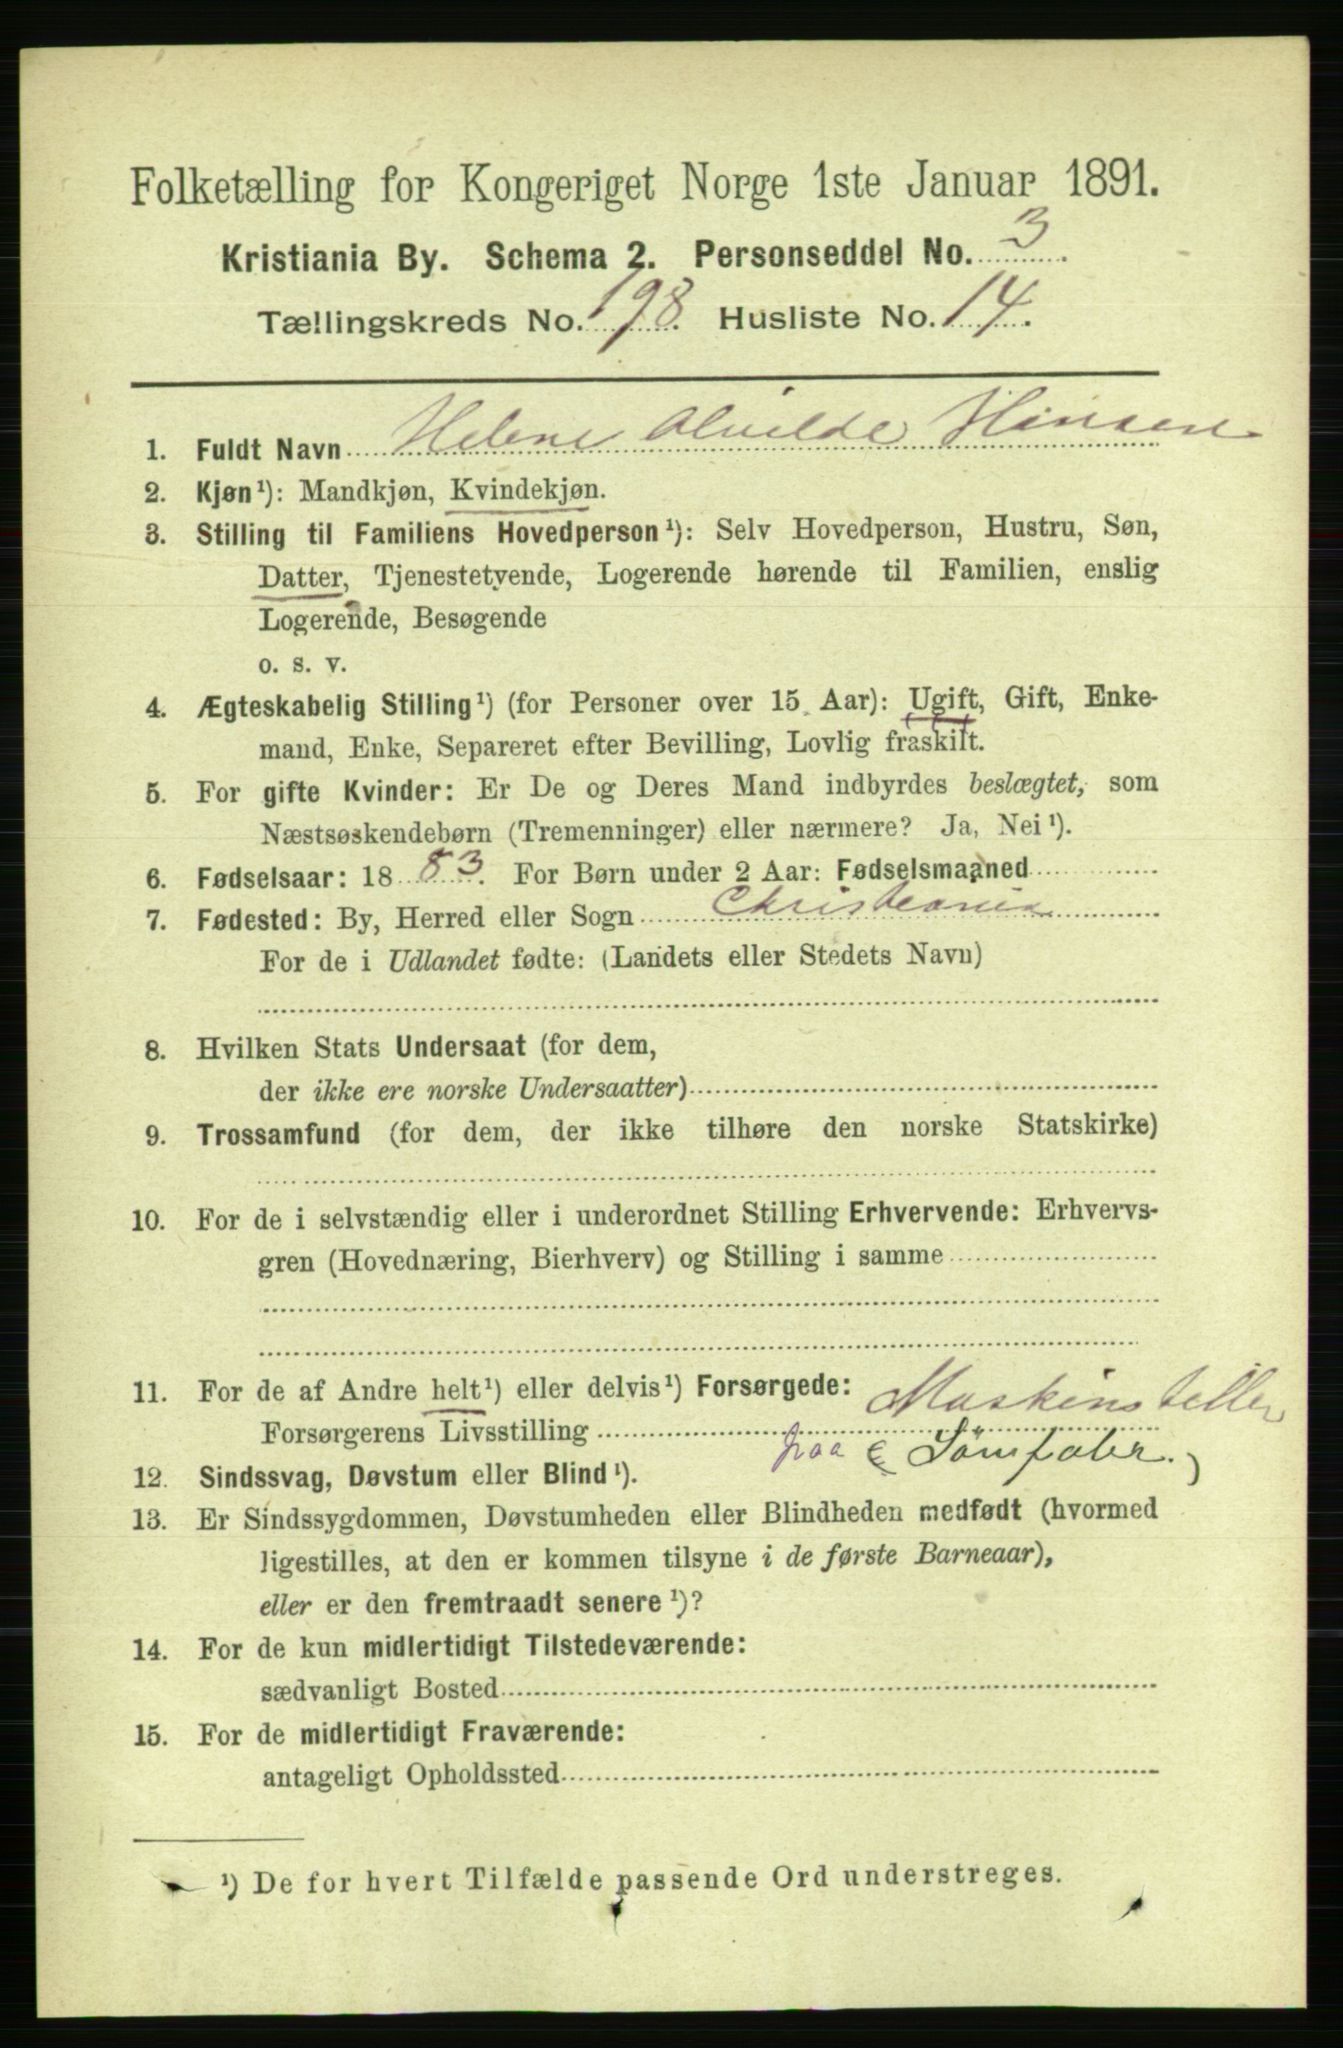 Folketælling for Kongeriget Norge 1ste Januar 1891.
Kristiania By. Schema 2. Personseddel No. 3.
Tællingskreds No. 198. Husliste No. 14.
1. Fuldt Navn Helene Alvilde Hansen
2. Kjøn¹): Mandkjøn, Kvindekjøn.
3. Stilling til Familiens Hovedperson¹): Selv Hovedperson, Hustru, Søn,
Datter, Tjenestetyende, Logerende hørende til Familien, enslig
Logerende, Besøgende
o. s. v.
4. Ægteskabelig Stilling¹) (for Personer over 15 Aar): Ugift, Gift, Enke-
mand, Enke, Separeret efter Bevilling, Lovlig fraskilt.
5. For gifte Kvinder: Er De og Deres Mand indbyrdes beslægtet, som
Næstsøskendebørn (Tremenninger) eller nærmere? Ja, Nei¹).
6. Fødselsaar: 1883. For Børn under 2 Aar: Fødselsmaaned
7. Fødested: By, Herred eller Sogn Christiania
For de i Udlandet fødte: (Landets eller Stedets Navn)
8. Hvilken Stats Undersaat (for dem,
der ikke ere norske Undersaatter)
9. Trossamfund (for dem, der ikke tilhøre den norske Statskirke)
10. For de i selvstændig eller i underordnet Stilling Erhvervende: Erhvervs-
gren (Hovednæring, Bierhverv) og Stilling i samme
11. For de af Andre helt¹) eller delvis¹) Forsørgede: Maskinsteller
Forsørgerens Livsstilling paa (Sömfabr.)
12. Sindssvag, Døvstum eller Blind¹).
13. Er Sindssygdommen, Døvstumheden eller Blindheden medfødt (hvormed
ligestilles, at den er kommen tilsyne i de første Barneaar),
eller er den fremtraadt senere¹)?
14. For de kun midlertidigt Tilstedeværende:
sædvanligt Bosted
15. For de midlertidigt Fraværende:
antageligt Opholdssted
¹) De for hvert Tilfælde passende Ord understreges.